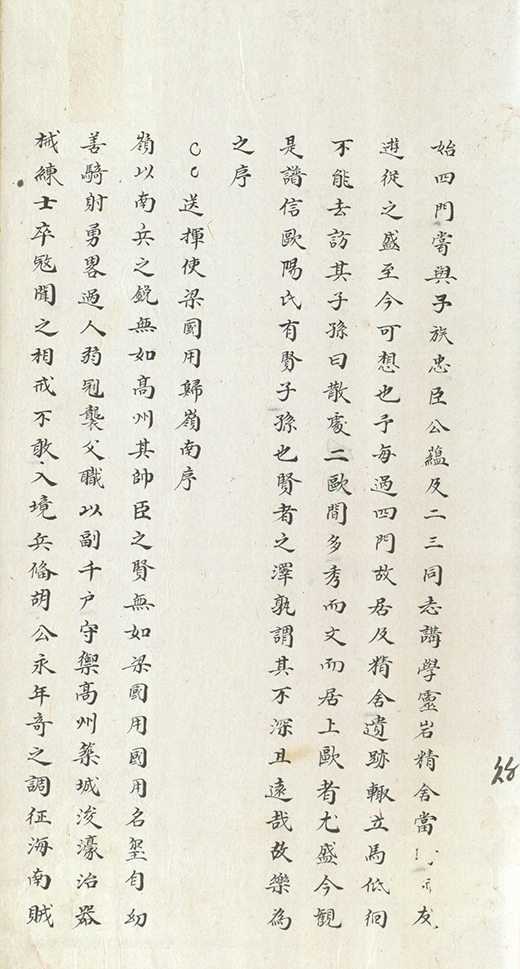 始四門嘗與予族忠臣公蘊及二三同志講學靈岩精舍當師友
遊從之盛至今可想也予每過四門故居及精舍遺跡輒立馬低徊
不能去訪其子孫曰散處二歐間多秀而文而居上歐者尤盛今觀
是譜信歐陽氏有賢子孫也賢者之澤孰謂其不深且遠哉故樂為
之序
送揮使梁國用歸嶺南序
嶺以南兵之銳無如高州其帥臣之賢無如梁國用國用名璽自幼
善騎射勇畧過人弱冠襲父職以副千户守禦高州築城浚濠治器
械練士卒冦聞之相戒不敢入境兵俻胡公永年奇之調征海南賊